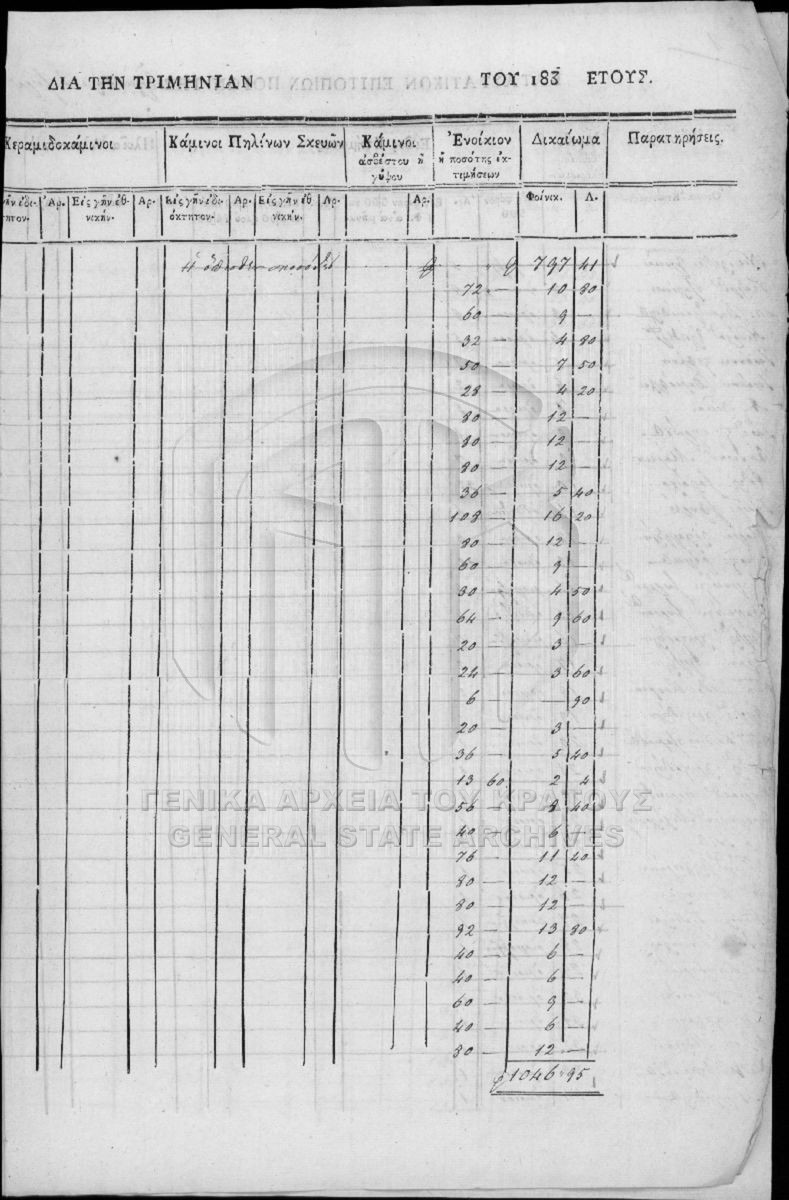 ΔΙΑ ΤΗΝ ΤΡΙΜΗΝΙΑΝ ΤΟΥ 183 ΕΤΟΥΣ.
Κεραμιδοκάμινοι Κάμινοι Πηλίνων Σκευῶν Κάμινοι Ἐνοίκιον Δικαίωμα Παρατηρήσεις.
ἀσβέστου ἢ ἢ ποσότης ἐκ-
γύψου τιμήσεων
γῆν ἐδι- Ἀρ. Εἰς γῆν ἐθ- Αρ. Εἰς γῆν ἐδι- Αρ. Εἰς γῆν ἐθ- Αρ. Αρ. Φοίνικ. Λ.
τητον. νικήν. όκτητον. νικήν.
Ἡ ὄπισθεν ποσότης 797 41
72 — 10 80
60 — 9 —
32 — 4 80
50 — 7 50
28 — 4 20
80 — 12 —
80 — 12 —
80 — 12 —
36 — 5 40
108 — 16 20
80 — 12 —
60 — 9 —
30 — 4 50
64 — 9 60
20 — 3 —
24 — 3 60
6 — — 90
20 — 3 —
36 — 5 40
13 60 2 4
56 — 8 40
40 — 6 —
76 — 11 40
80 — 12 —
80 — 12 —
92 — 13 80
40 — 6 —
40 — 6 —
60 — 9 —
40 — 6 —
80 — 12 —
1046 95
ΓΕΝΙΚΑ ΑΡΧΕΙΑ ΤΟΥ ΚΡΑΤΟΥΣ
GENERAL STATE ARCHIVES